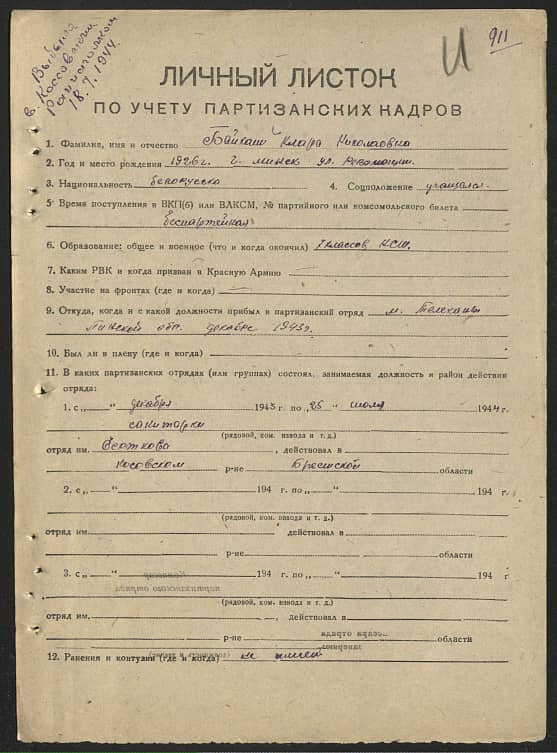 Выбыла
в Коссовский
18.7.1944
И 911
ЛИЧНЫЙ ЛИСТОК
ПО УЧЕТУ ПАРТИЗАНСКИХ КАДРОВ
1. Фамилия, имя и отчество Клара Николаевна
2. Год и место рождения 1926г. г. Минск ул. Революции.
3. Национальность белорусска 4. Соцположение учащаяся.
5. Время поступления в ВКП(б) или ВЛКСМ, № партийного или комсомольского билета
беспартейная
6. Образование: общее и военное (что и когда окончил) 7 классов НСШ.
7. Каким РВК и когда призван в Красную Армию
8. Участие на фронтах (где и когда)
9. Откуда, когда и с какой должности прибыл в партизанский отряд м. Телеханы
Пинской обл. декабре 1943г.
10. Был ли в плену (где и когда)
11. В каких партизанских отрядах (или группах) состоял, занимаемая должность и район действия
отряда:
1. с „ “ декабря 1943 г по „25 “ июля 1944 г.
санитарки
(рядовой, ком. взвода и т. д.)
отряд им. , действовал в
Косовском р-не Брестской области
2. с „ “ 194 г. по „ “ 194 г.
(рядовой, ком. взвода и т. д.)
отряд им. действовал в
р-не области
3. с „ “ 194 г. по „ “ 194 г
партизанского отряда
(рядовой, ком. взвода и т. д.)
отряд им. , действовал в
р-не области
12. Ранения и контузии (где и когда) не имеет